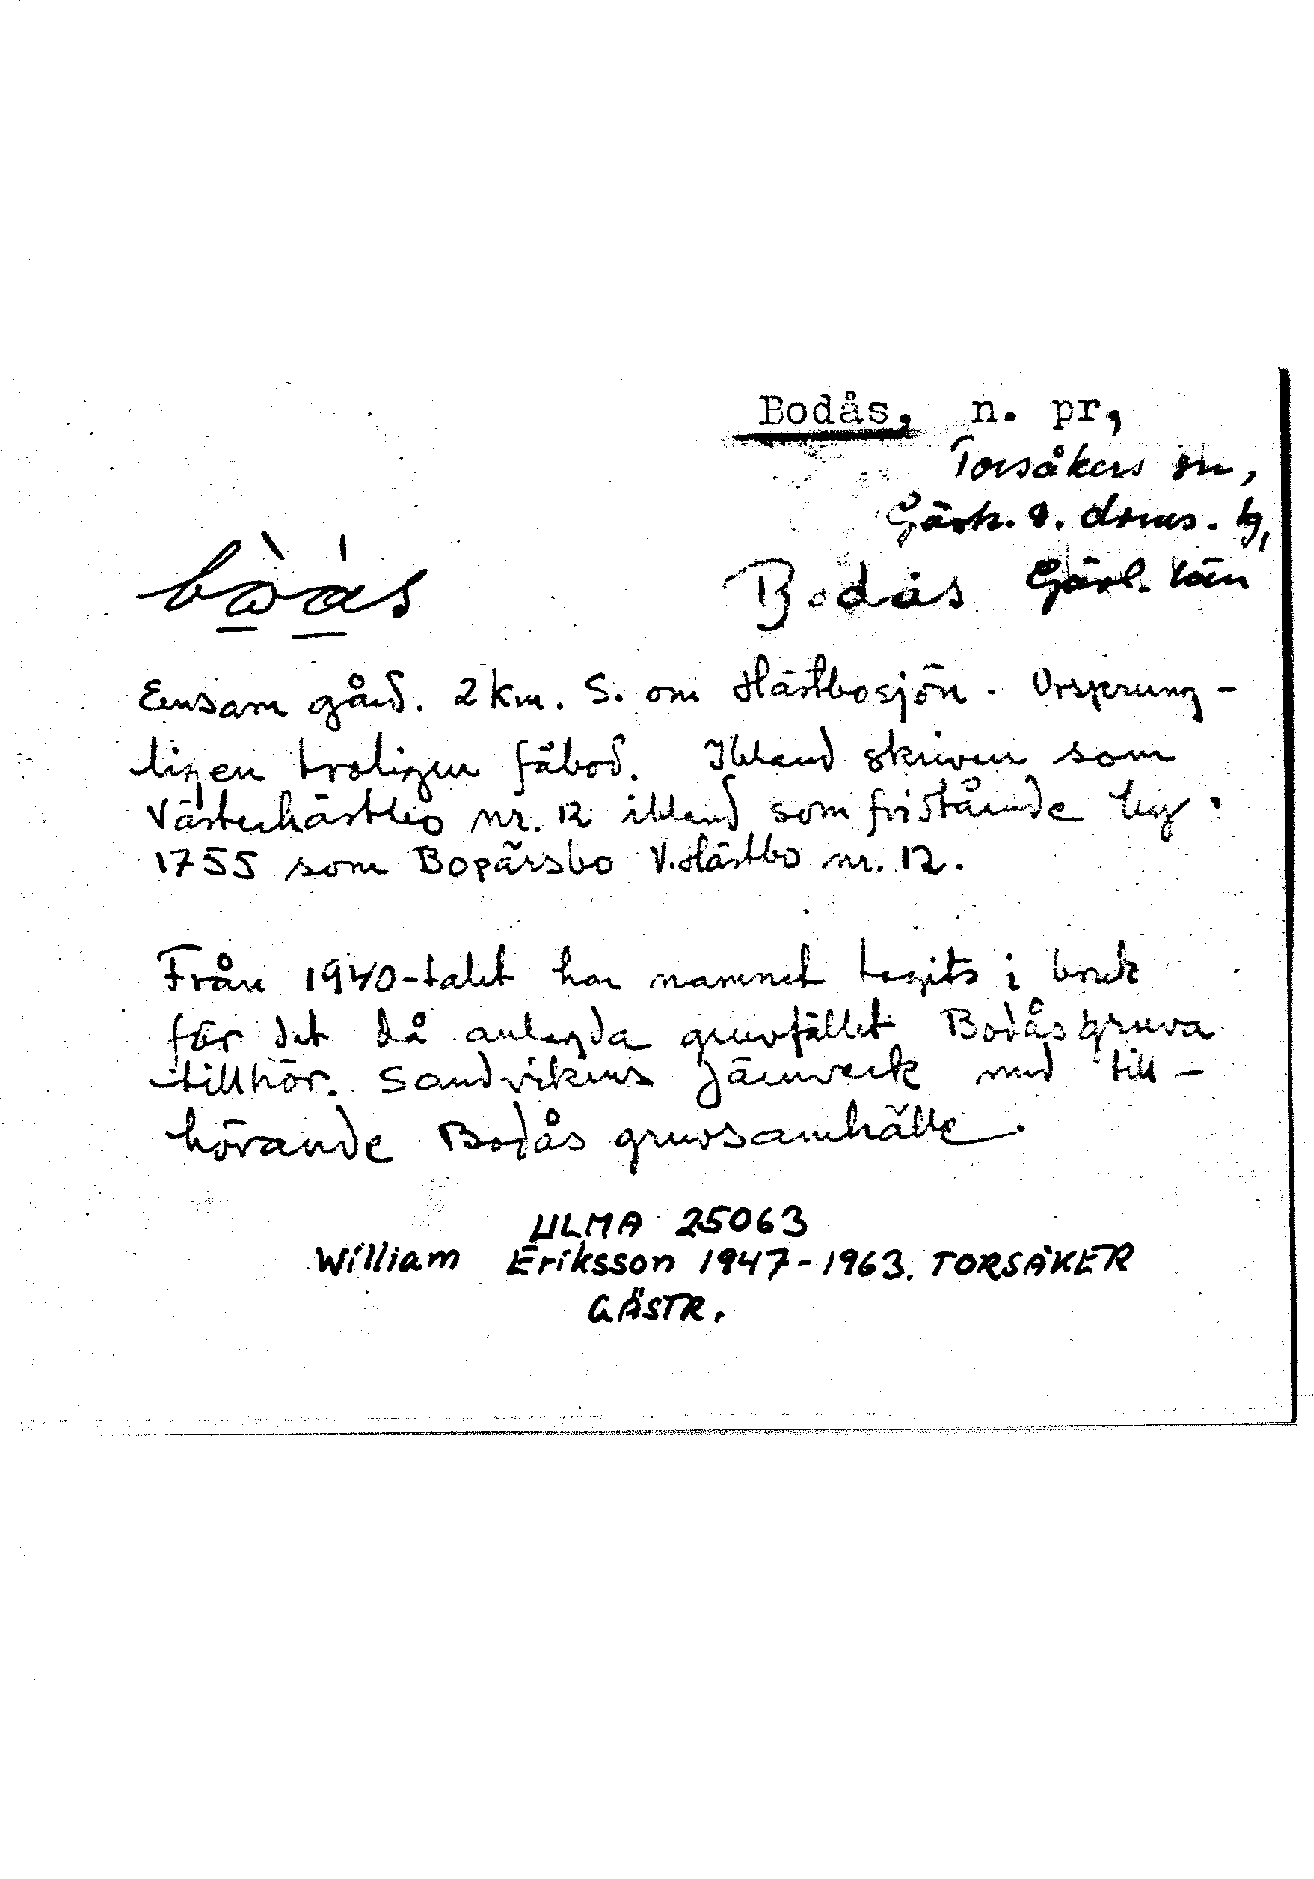 Bodås, n. pr,
Torsåkers sn,
Gästr. ö. doms. lg,
Bodås Gävl. län
Ensam gård. 2 km. S. om Hästbosjön. Ursprung-
ligen troligen fäbod. Ibland skriven som
Västerhästbo nr. 12 ibland som fristående
1755 som Bopärsbo V. Hästbo nr. 12.
Från 1940-talet har namnet tagits i bruk
för det då anlagda gruvfältet Bodåsgruva
tillhör. Sandvikens Järnverk med till-
hörande Bodås gruvsamhälle.
ULMA 25063
William Eriksson 1947-1963. TORSÅKER
GÄSTR.